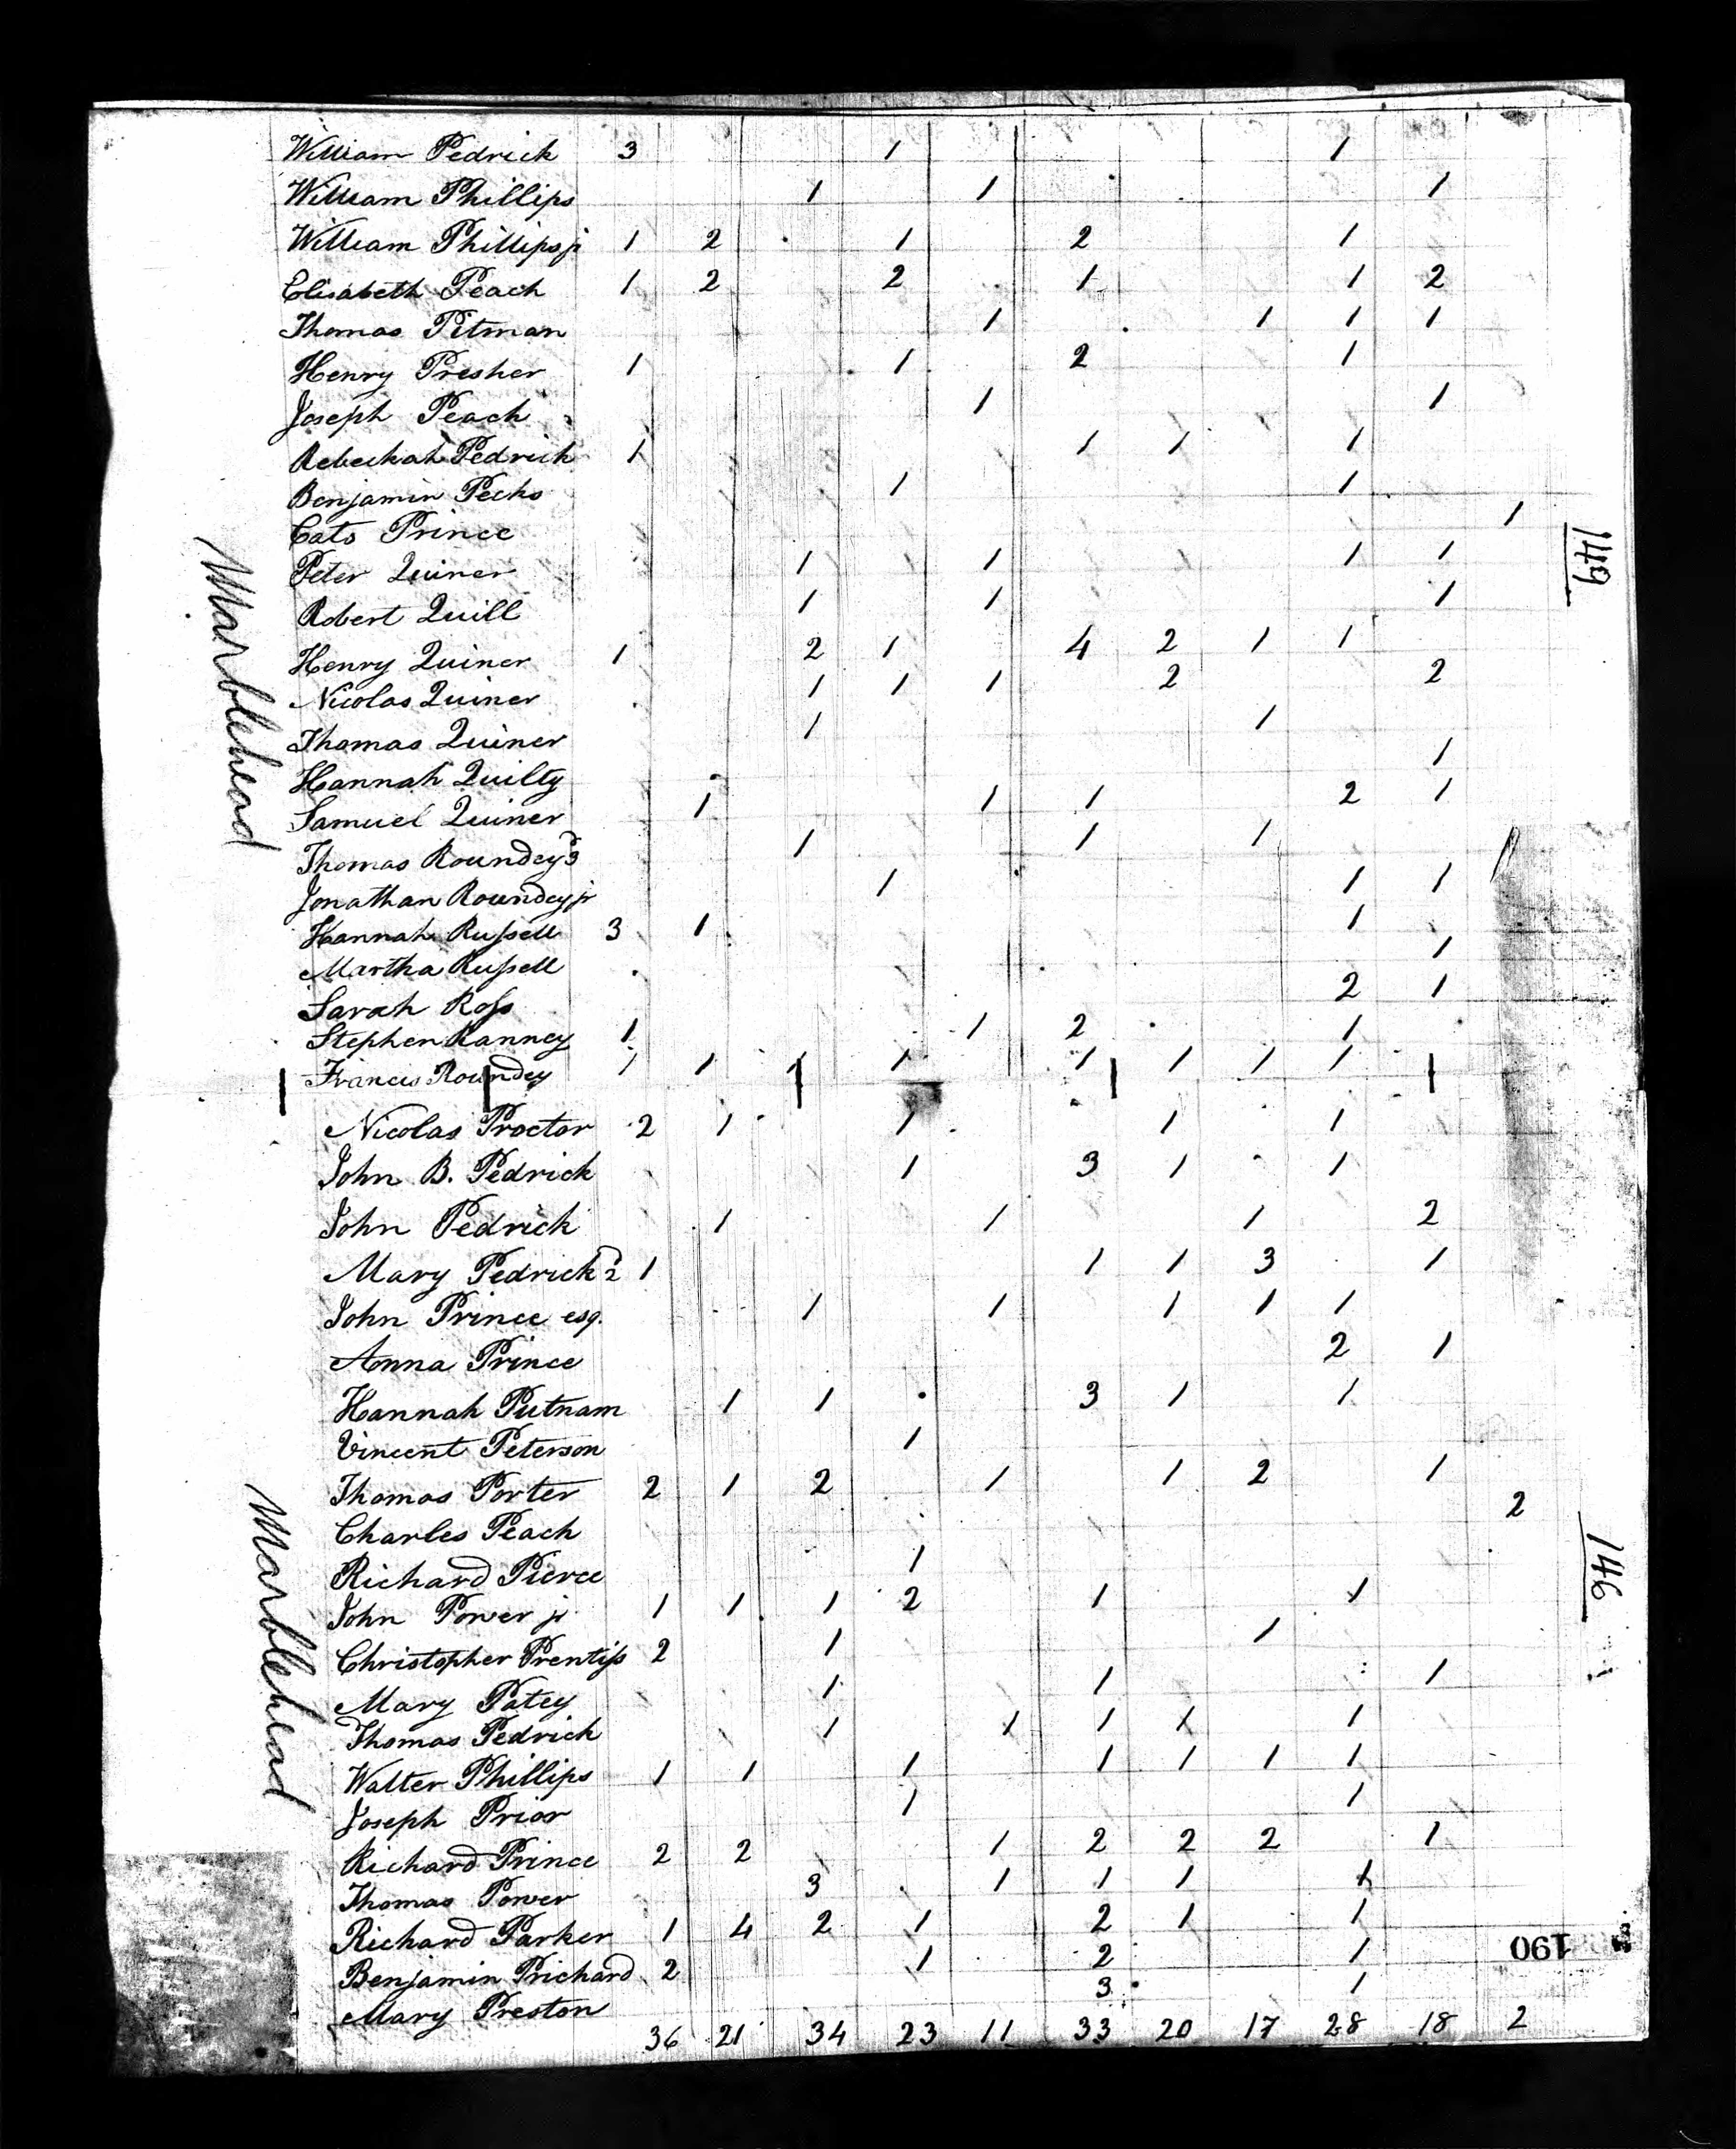 William Pedrick 3 1 1
William Phillips 1 1 1
William Phillips jr 1 2 1 2 1
Elisabeth Peach 1 2 2 1 1 2
Thomas Pitman 1 1 1 1
Henry Presher 1 1 2 1
Joseph Peach 1 1
Rebeckah Pedrick 1 1 1 1
Benjamin Pecks 1 1
Cato Prince 1
Peter Quiner 1 1 1 1
Robert Quill 1 1 1
Henry Quiner 1 2 1 4 2 1 1
Nicolas Quiner 1 1 1 2 2
Thomas Quiner 1 1
Hannah Quilty 1
Samuel Quiner 1 1 1 2 1
Thomas Roundey 3d 1 1 1
Jonathan Roundey jr 1 1 1
Hannah Russell 3 1 1
Martha Russell 1
Sarah Ross 2 1
Stephen Ranney 1 1 2 1
Francis Roundey 1 1 1 1 1 1 1 1
Marblehead
149
Nicolas Proctor 2 1 1 1 1
John B. Pedrick 1 3 1 1
John Pedrick 1 1 1 2
Mary Pedrick 2d 1 1 1 3 1
John Prince esq. 1 1 1 1 1
Anna Prince 2 1
Hannah Putnam 1 1 3 1 1
Vincent Peterson 1
Thomas Porter 2 1 2 1 1 2 1
Charles Peach 2
Richard Pierce 1
John Power jr 1 1 1 2 1 1
Christopher Prentiss 2 1 1
Mary Patey 1 1 1
Thomas Pedrick 1 1 1 1 1
Walter Phillips 1 1 1 1 1 1 1
Joseph Prior 1 1
Richard Prince 2 2 1 2 2 2 1
Thomas Power 3 1 1 1 1
Richard Parker 1 4 2 1 2 1 1
Benjamin Prichard 2 1 2 1
Mary Preston 3 1
36 21 34 23 11 33 20 17 28 18 2
Marblehead
146
190